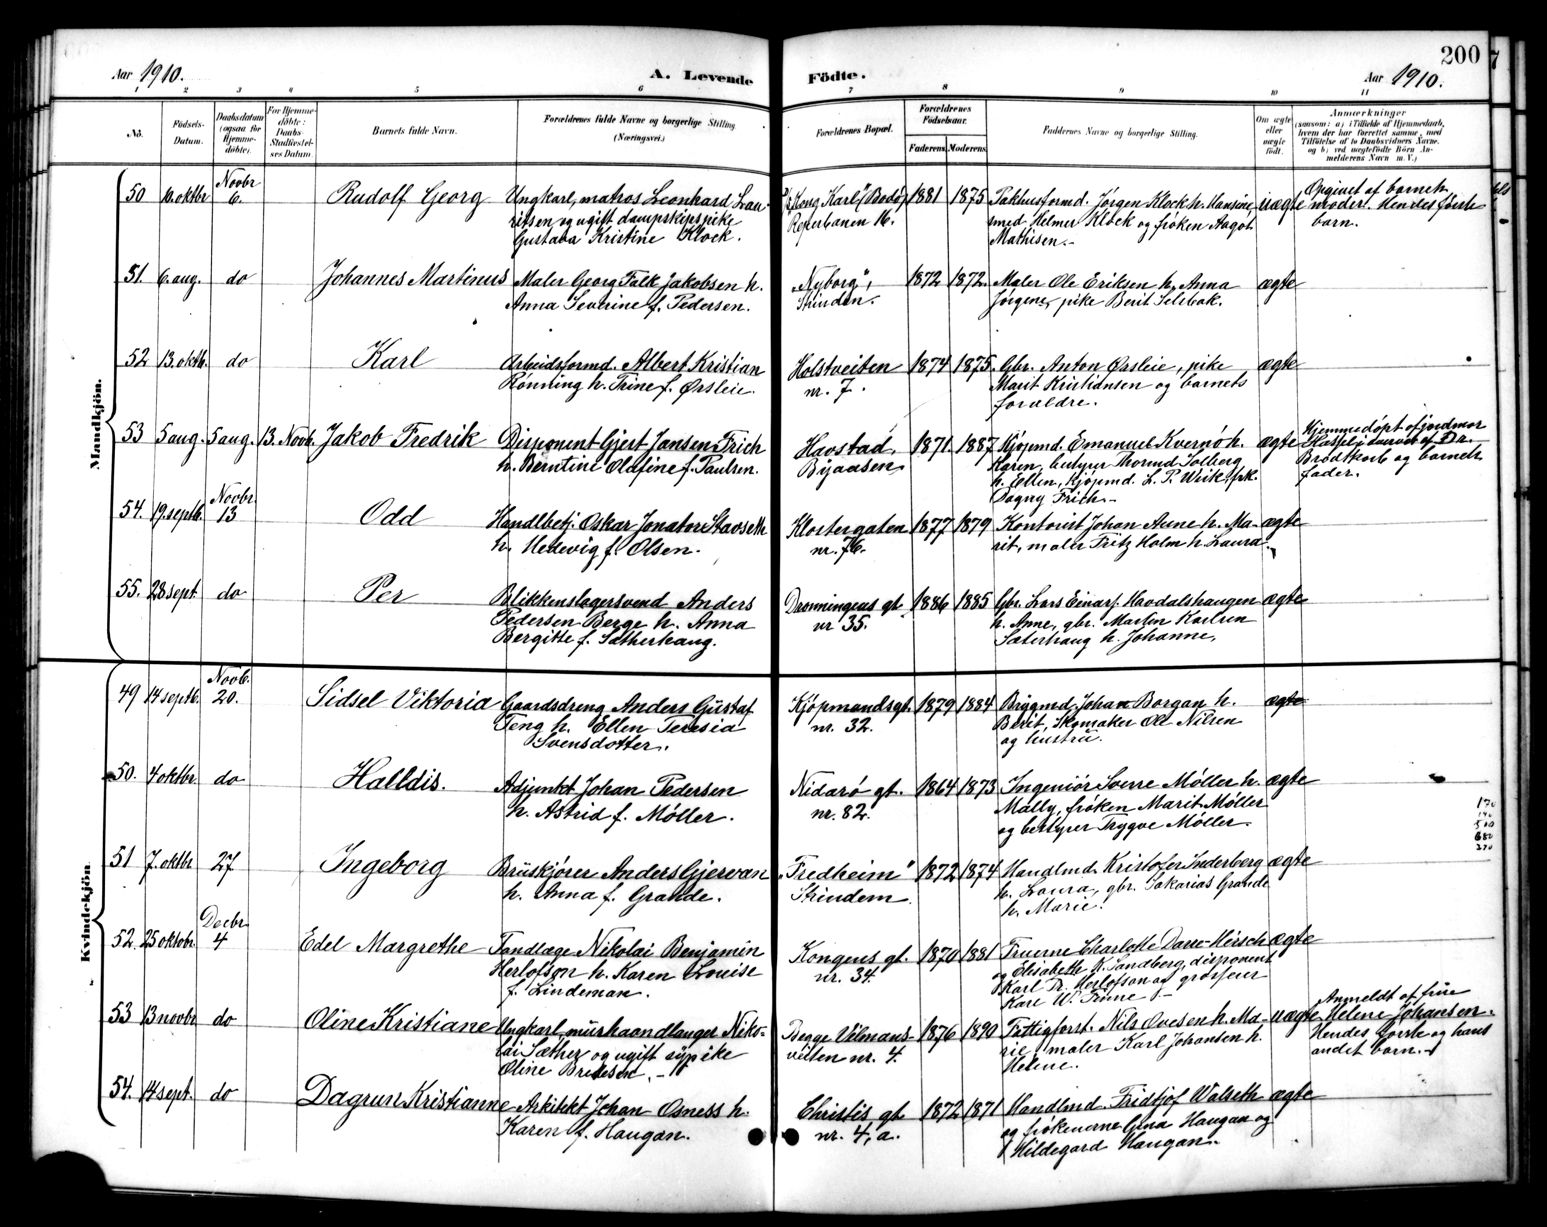 200
Aar 1910.
A. Levende
Födte.
Aar 1910.
1 2 3 4 5 6 7 8 9 10 11
No.
Födsels-
Datum.
Daabsdatum
(ogsaa for
Hjemme-
döbte).
For Hjemme-
döbte:
Daabs-
Stadfæstel-
ses Datum.
Barnets fulde Navn.
Forældrenes fulde Navne og borgerlige Stilling
(Næringsvei.)
Forældrenes Bopæl.
Forældrenes
Födselsaar.
Faderens. Moderens.
Faddernes Navne og borgerlige Stilling.
Om ægte
eller
uægte
födt.
Anmærkninger
Mandkjön.
50 10. oktbr Novbr 6. Rudolf Georg
Ungkarl, matros Leonhard Lau-
ritsen og ugift dampskipspike
Gustava Kristine Klock.
"Kong Karl" (Bodø)
Reperbanen 16.
1881 1875
Pakhusformd. Jørgen Klock h. Hansine,
smed Helmer Klock og frøken Aagot
Mathisen.
uægte
Opgivet af barnets
moder. Hendes første
barn.
51. 6. aug. do Johannes Martinus
Maler Georg Falk Jakobsen h.
Anna Severine f. Pedersen.
"Nyborg",
Strinden.
1872 1872.
Maler Ole Eriksen h. Anna
Jørgene, pike Berit Selsbak.
ægte
52 13. oktb. do Karl
Arbeidsformd. Albert Kristian
Rønning h. Trine f. Ørsleie.
Holstveiten
nr. 7.
1874 1875
Gbr. Anton Ørsleie, pike
Marit Kristiansen og barnets
forældre.
ægte
53 5 aug. 5 aug. 13. Novb. Jakob Fredrik
Disponent Gjert Jansen Frich
h. Berntine Olafine f. Paulsen.
Havstad,
Byaasen
1871 1887
Kjøpmd. Emanuel Kvernø h.
Karen, bestyrer Thormd Solberg
h. Ellen, kjøpmd. L. P. Wiik, frk.
Dagny Frich.
ægte
Hjemmedøpt af jordmor
Brodtkorb og barnets
fader.
54. 19. septb. Novbr 13 Odd
Handlbetj. Oskar Jonatore Stavseth
h. Hedevig f. Olsen.
Klostergaten
nr. 76.
1877 1879
Kontorist Johan Aune h. Ma-
rit, maler Fritz Holm h. Laura.
ægte
55. 28 sept. do Per
Blikkenslagersvend Anders
Pedersen Berge h. Anna
Bergitte f. Sætherhaug.
Dronningens gt.
nr 35.
1886 1885
Gbr. Lars Einar Havdalshaugen
h. Anne, gbr. Martin Karlsen
Sæterhaug h. Johanne,
ægte
Kvindekjön.
49 14 septb. Novb. 20. Sidsel Viktoria
Gaardsdreng Anders Gustaf
Teng h. Ellen Teresia
Svensdotter.
Kjøpmandsgt.
nr. 32.
1879 1884
Brygmd. Johan Borgan h.
Berit, Skomaker Ole Nilsen
og hustru.
ægte
50. 4 oktbr do Halldis.
Adjunkt Johan Pedersen
h. Astrid f. Møller.
Nidarø gt.
nr. 82.
1864 1873
Ingeniør Sverre Møller h.
Mally, frøken Marit Møller
og bestyrer Trygve Møller.
ægte
51 7. oktbr 27 Ingeborg
Bruskjører Anders Gjervan
h. Anna f. Grande.
"Fredheim"
Strinden.
1872 1874
Handlmd. Kristofer Inderberg
h. Laura, gbr. Sakarias Grande
h. Marie.
ægte
52. 25 oktobr Decbr 4 Edel Margrethe
Tandlæge Nikolai Benjamin
Herlofson h. Karen Louise
f. Lindeman.
Kongens gt.
nr. 34.
1870 1881
Fruerne Charlotte Darre-Hirsch
og Elisabeth K. Sandberg, disponent
Karl Fr. Herlofson og grosserer
Karl W. Finne
ægte
53 13 novbr do Oline Kristiane
Ungkarl, murhaandlanger Niko-
lai Sæther og ugift sypike
Oline Bredesen.
Begge Vilmans-
veiten nr. 4
1876 1890
Fattigforst. Nils Ovesen h. Ma-
rie, maler Karl Johansen h.
Helene.
uægte
Anmeldt af frue
Helene Johansen.
Hendes første og hans
andet barn.
54. 14 sept. do Dagrun Kristianne
Arkitekt Johan Osness h.
Karen f. Haugan.
Christis gt.
nr. 4, a.
1872 1871
Handlmd. Fridtjof Walseth
og frøkenerne Gina Haugan og
Hildegard Haugan.
ægte